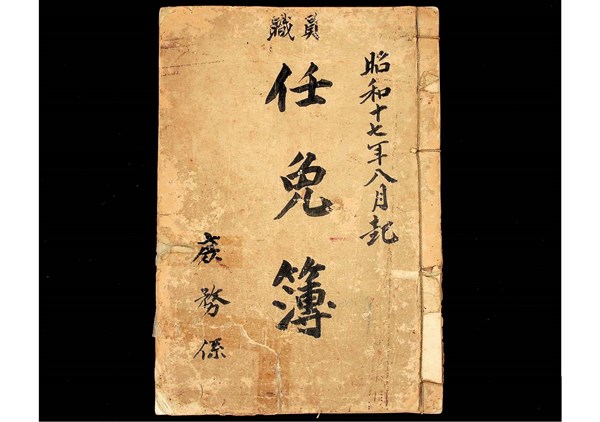 昭和十七年八月起
職員
任免簿
庶務係